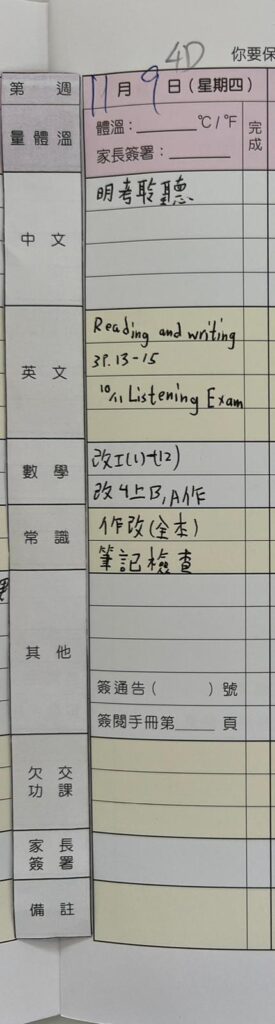 4D
你要保
第 週 11 月 9 日 (星期四)
量體溫 體溫：______ °C/°F 完成
家長簽署：______
中文 明考聆聽
英文 Reading and writing
3P.13-15
10/11 Listening Exam
數學 改工(1)-(12)
改4上B,A作
常識 作改(全本)
筆記檢查
其他
簽通告( )號
簽閱手冊第____頁
欠交功課
家長簽署
備註